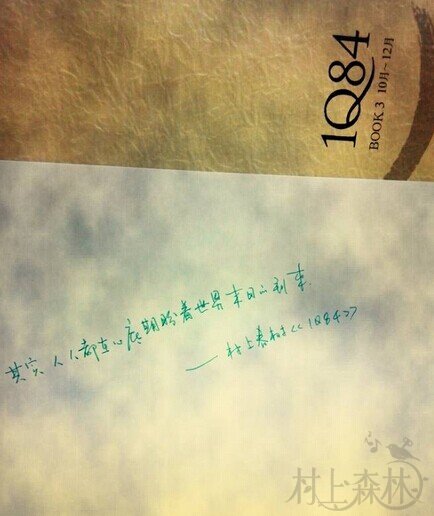 1Q84
BOOK 3 10月~12月
其实人人都在心底期盼着世界末日的到来.
——村上春树<<1Q84>>
村上森林